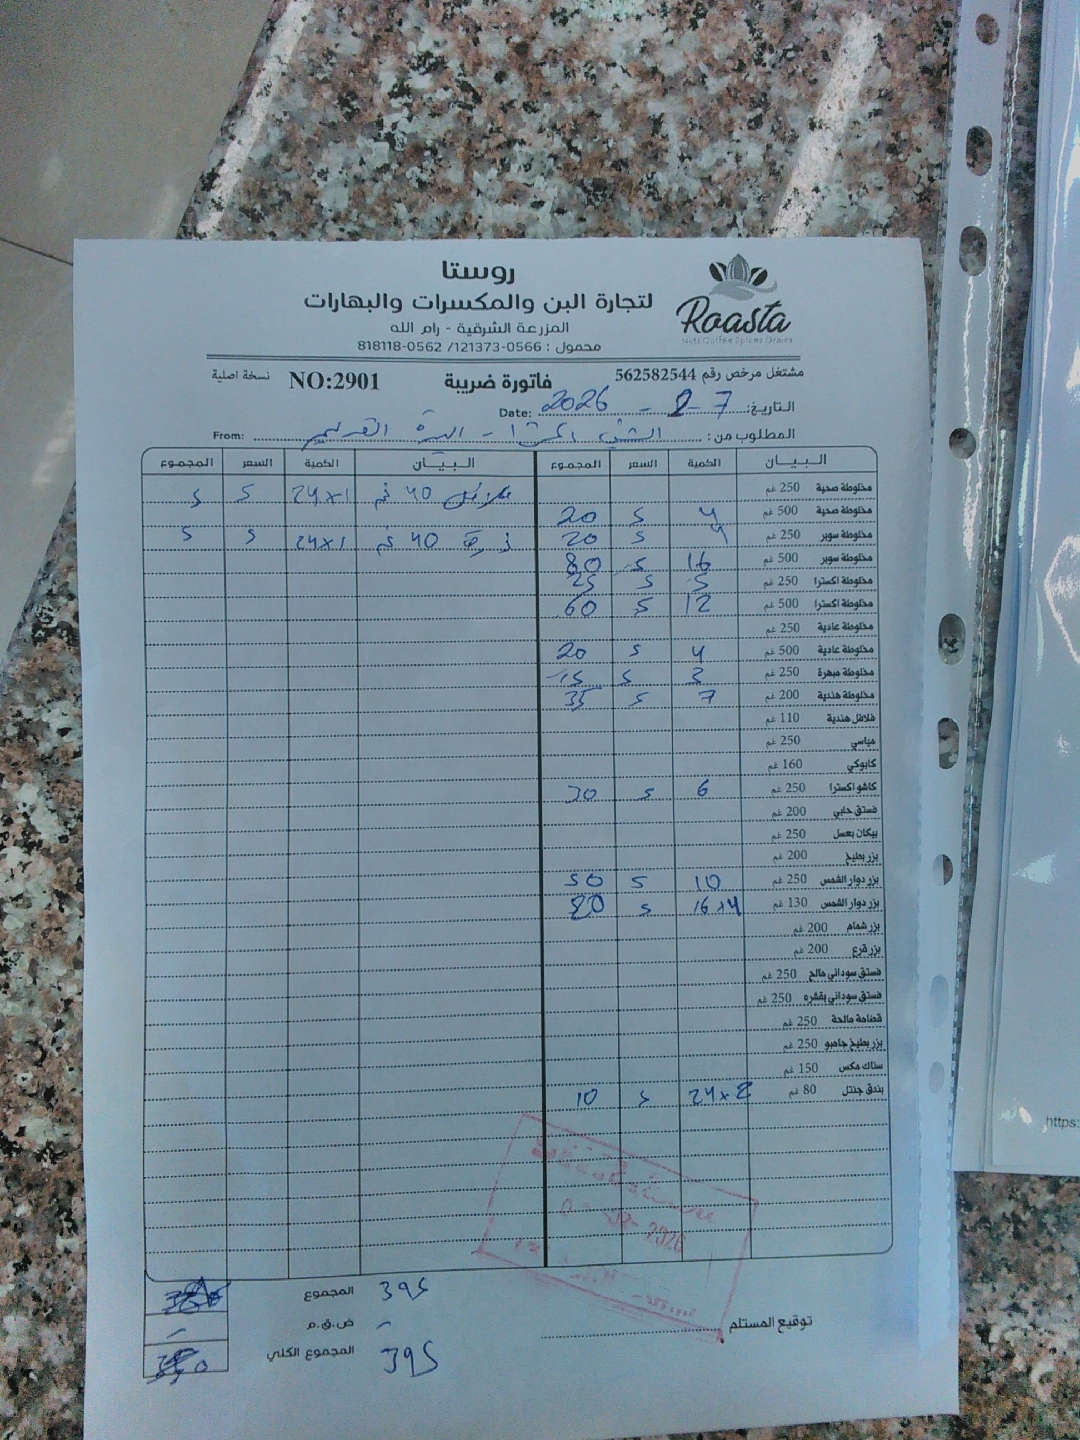 روستا
لتجارة البن والمكسرات والبهارات
المزرعة الشرقية - رام الله
محمول : 0566-121373/ 0562-818118
Roasta
Nuts Coffee Spices Grains
مشتغل مرخص رقم 562582544
فاتورة ضريبة
NO:2901
نسخة اصلية
التاريخ: 7-2-2026 Date:
المطلوب من: From:
البيان الكمية السعر المجموع البيان الكمية السعر المجموع
مخلوطة صحية 250 غم 40 غم 24x1 5 5
مخلوطة صحية 500 غم 4 5 20
مخلوطة سوبر 250 غم 4 5 20 ذرة 40 غم 24x1 5 5
مخلوطة سوبر 500 غم 16 5 80
مخلوطة اكسترا 250 غم 5 5 25
مخلوطة اكسترا 500 غم 12 5 60
مخلوطة عادية 250 غم
مخلوطة عادية 500 غم 4 5 20
مخلوطة مبهرة 250 غم 3 5 15
مخلوطة هندية 200 غم 7 5 35
فلافل هندية 110 غم
مياسي 250 غم
كابوكي 160 غم
كاشو اكسترا 250 غم 6 5 30
فستق حلبي 200 غم
بيكان بعسل 250 غم
بزر بطيخ 200 غم
بزر دوار الشمس 250 غم 10 5 50
بزر دوار الشمس 130 غم 16x4 5 20
بزر شمام 200 غم
بزر قرع 200 غم
فستق سوداني مالح 250 غم
فستق سوداني بقشره 250 غم
قضامة مالحة 250 غم
بزر بطيخ جامبو 250 غم
سناك مكس 150 غم
بندق جنتل 80 غم 24x2 5 10
2026
المجموع 395
ض.ق.م -
المجموع الكلي 395
توقيع المستلم
https: